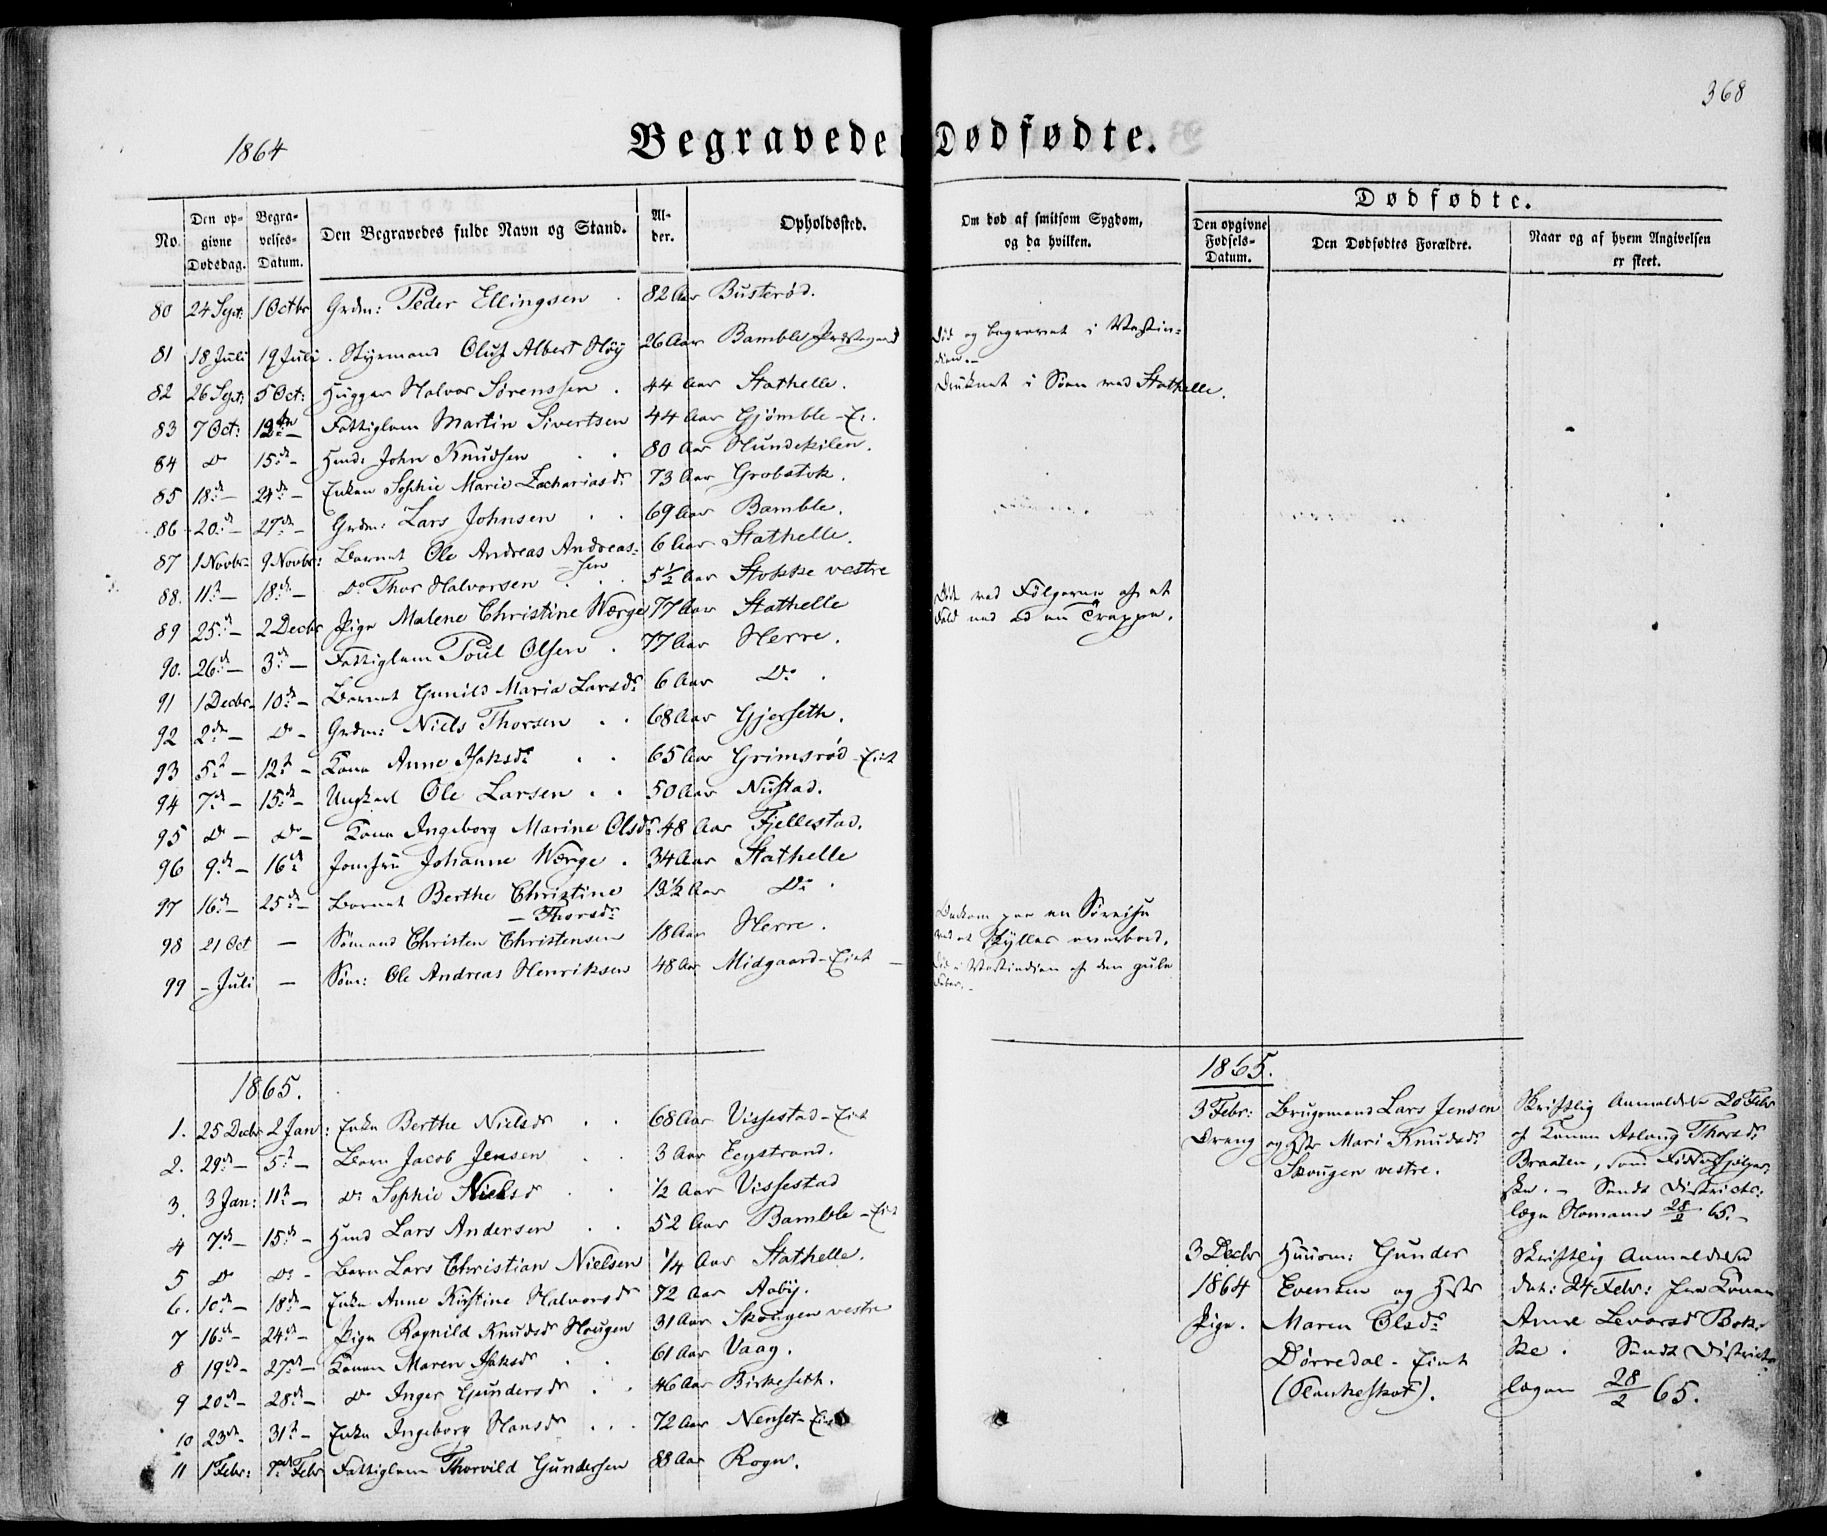 368
1864
Begravede Dødfødte.
No.
Den opgivne Dødsdag.
Begravelses-Datum.
Den Begravedes fulde Navn og Stand.
Alder.
Opholdssted.
Om død af smitsom Sygdom, og da hvilken.
Dødfødte.
Den opgivne Fødsels-Datum.
Den Dødfødtes Forældre.
Naar og af hvem Angivelsen er skeet.
80 24 Sept: 1 Octbr Grdm: Peder Ellingsen . 82 Aar Busterød.
81 18 Juli 19 Juli . Styrmand Oluf Albert Høy 26 Aar Bamble Præstegaard Død og begravet i Vestindien.-
82 26 Sept: 5 Oct: Hugger Halvor Sørenssen . 44 Aar Stathelle. Druknet i Søen ved Stathelle.
83 7 Oct: 12te - Fattiglem Martin Sivertsen 44 Aar Gjømble - E.
84 Do 15de - Huusm: John Knudsen . . 80 Aar Hundekilen.
85 18de - 24de - Enken Sophie Marie Zachariasdr 73 Aar Grobstok.
86 - 20de 27de - Grdm: Lars Johnsen . . 69 Aar Bamble.
87 1 Novbr- 9 Novbr: Barnet Ole Andreas Andreas-
sen 6 Aar Stathelle.
88. 11te - 18de - Do Thor Halvorsen . . 5½ Aar Stokke vestre
89 25de - 2 Decbr Pige Malene Christine Wærge 77 Aar Stathelle Død ved Følgerne af et
Fald ned ad en Trappe.
90. 26de - 3de - Fattiglem Poul Olsen . 77 Aar Herre.
91 1 Decbr- 10de - Barnet Gunild Maria Larsdr 6 Aar Do .
92 2den - Do - Grdm: Niels Thorsen . . 68 Aar Gjerseth.
93 5te - 12te - Kone Anne Isaksdr . . 65 Aar Grimsrød - Eiet
94 7de - 15de - Ungkarl Ole Larsen . . 50 Aar Nustad.
95 Do - Do - Kone Ingeborg Marine Olsdr 48 Aar Fjellestad.
96 9de - 16de Jomfru Johanne Wærge . 34 Aar Stathelle
97 16de - 25de - Barnet Berthe Christine
- Thorsdr 13½ Aar Do .
98 21 Oct - Sømand Christen Christensen 18 Aar Herre. Omkom paa en Søreise
ved at skylles overbord.
99 - Juli - Søm: Ole Andreas Henriksen 48 Aar Midgaard - Eiet - Død i Vestindien af den gule
Feber.-
1865.
1. 25 Decbr 2 Jan: Enke Berthe Nielsdr . . 68 Aar Vissestad - Eiet
2. 29de - 5te - Barn Jacob Jensen . . 3 Aar Eegstrand.
3. 3 Jan: 11te - Do Sophie Nielsdr . . ½ Aar Vissestad
4 7de - 15de - Huusmd Lars Andersen . . 52 Aar Bamble - Eiet
5 Do Do - Barn Lars Christian Nielsen ¼ Aar Stathelle.
6. 10de - 18de - Enke Anne Kirstine Halvorsdr 72 Aar Aaby.
7 16de - 24de - Pige Ragnild Knudsdr Haugen 31 Aar Skougen vestre
8 19de - 27de - Konen Maren Isaksdr . . 61 Aar Vaag.
9 20de - 28de - Do Inger Gundersdr . . 46 Aar Birkeseth.
10 23de - 31te - Enke Ingeborg Hansdr . . . 72 Aar Nenset - Eiet
11 1 Febr: 7de Febr Fattiglem Thorvild Gundersen 88 Aar Rogn.
1865.
3 Febr: Brugsmand Lars Jensen
Dreng og Hstr Mari Knudsdr
Skougen vestre.
Skriftlig Anmeldelse 20 Febr
af Konen Aslaug Thorsdr
Braaten, som Fødselshjelper-
ske. - Sendt Districts-
læge Homann 28/2 65.-
3 Decbr Huusm: Gunder
1864 Evensen og Hstr
Pige. Maren Olsdr
Dørredal - Eiet
(Plankeskot).
Skriftlig Anmeldelse
dat: 24 Febr: fra Konen
Anne Levorsd Bak-
ke. Sendt Districts-
lægen 28/2 65.